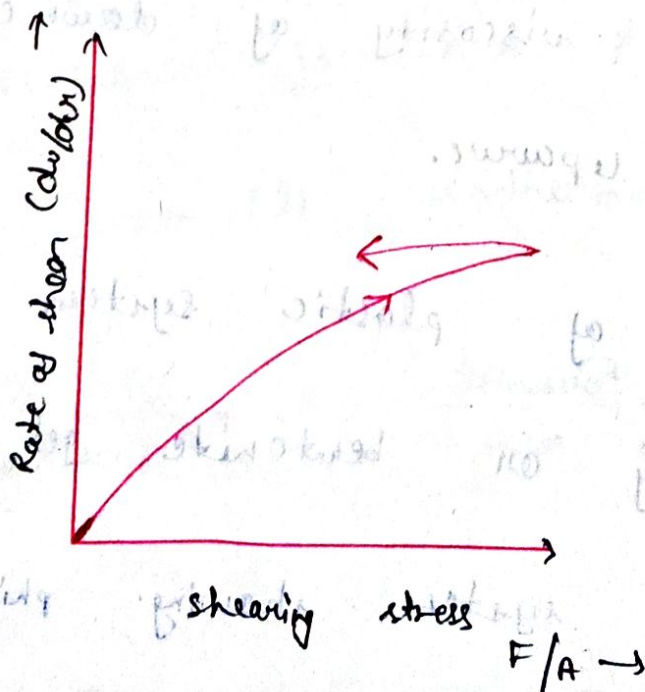 Rate of shear (dv/dr)
shearing stress
F/A